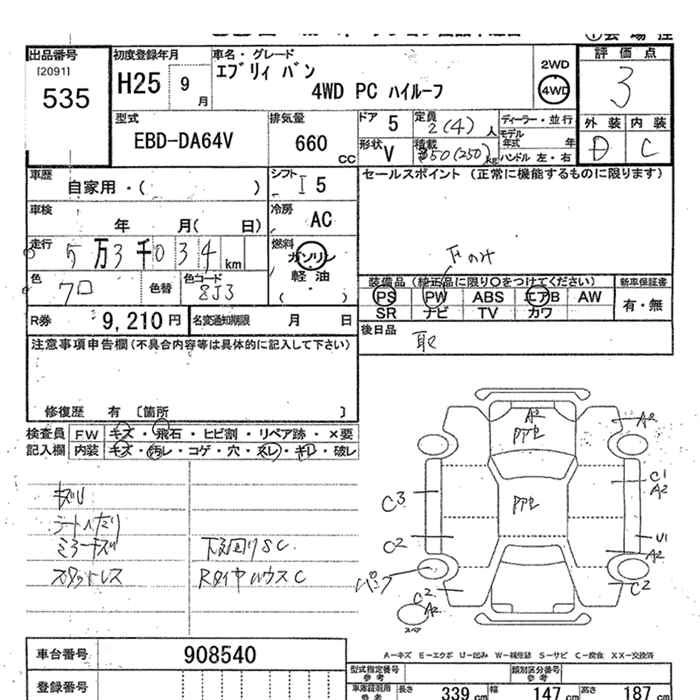 出品番号
[2091]
535
初度登録年月
H25 9 月
車名・グレード
エブリィ バン
4WD PC ハイルーフ
2WD
4WD
評価点
3
外装 内装
D C
型式
EBD-DA64V
排気量
660 CC
ドア 5
形状 V
定員 2(4) 人
積載 350(250) kg
ディーラー・並行
モデル年式 年
ハンドル 左・右
車歴
自家用・( )
シフト
I5
セールスポイント (正常に機能するものに限ります)
車検
年 月( 日)
冷房
AC
走行
5万3千034 km
燃料
ガソリン
軽油
( )
色
クロ
色替
色コード
ZJ3
下のみ
装備品 (純正品に限り○をつけてください)
新車保証書
PS PW ABS エアB AW
有・無
SR ナビ TV カワ
R券 9,210 円
名変通知期限 月 日
後日品
取
注意事項申告欄 (不具合内容等は具体的に記入して下さい)
修復歴 有 [箇所 ]
検査員記入欄
FW キズ・飛石・ヒビ割・リペア跡・×要
内装 キズ・汚レ・コゲ・穴・スレ・キレ・破レ
シートヘたり
ミラーキズ
スタッドレス
下廻りSC
RタイヤハウスC
A2
A2
C1
A2
C3
C2
U1
A2
パンク
C2
C2
A2
スペア
A-キズ E-エクボ U-凹み W-補修跡 S-サビ C-腐食 XX-交換済
車台番号
908540
登録番号
型式指定番号
参考
類別区分番号
参考
長さ 339 cm
幅 147 cm
高さ 187 cm